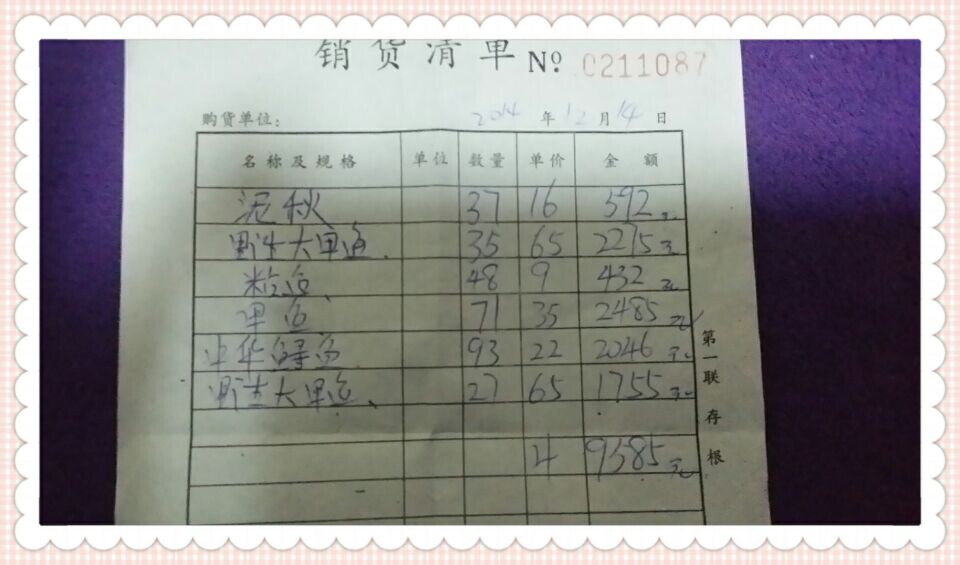 销货清单 Nº 0211087
购货单位: 2014 年 12 月 14 日
名称及规格 单位 数量 单价 金额
泥秋 37 16 592元
野生大甲鱼 35 65 2275元
粒鱼 48 9 432元
甲鱼 71 35 2485元
中华鲟鱼 93 22 2046元
野生大甲鱼 27 65 1755元
9585元
第一联存根